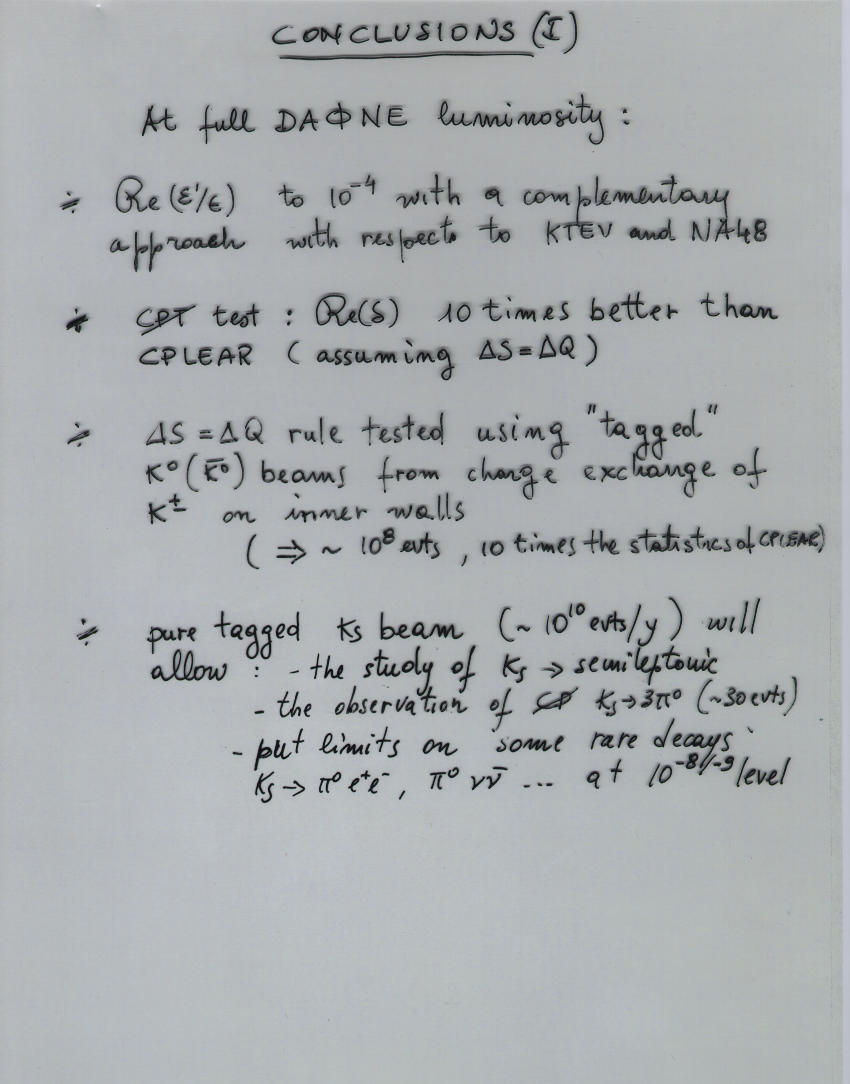 CONCLUSIONS (I)
At full DAΦNE luminosity :
÷ Re(ε'/ε) to 10⁻⁴ with a complementary
approach with respects to KTEV and NA48
÷ C̶P̶T̶ test : Re(δ) 10 times better than
CPLEAR ( assuming ΔS=ΔQ )
÷ ΔS=ΔQ rule tested using "tagged"
K⁰(K̅⁰) beams from charge exchange of
K± on inner walls
( ⇒ ~ 10⁸ evts , 10 times the statistics of CPLEAR)
÷ pure tagged Ks beam (~ 10¹⁰ evts/y ) will
allow : - the study of Ks → semileptonic
- the observation of C̶P̶ Ks→3π⁰ (~30 evts)
- put limits on some rare decays
Ks → π⁰ e⁺e⁻, π⁰ νν̅ ... at 10⁻⁸/⁻⁹ level